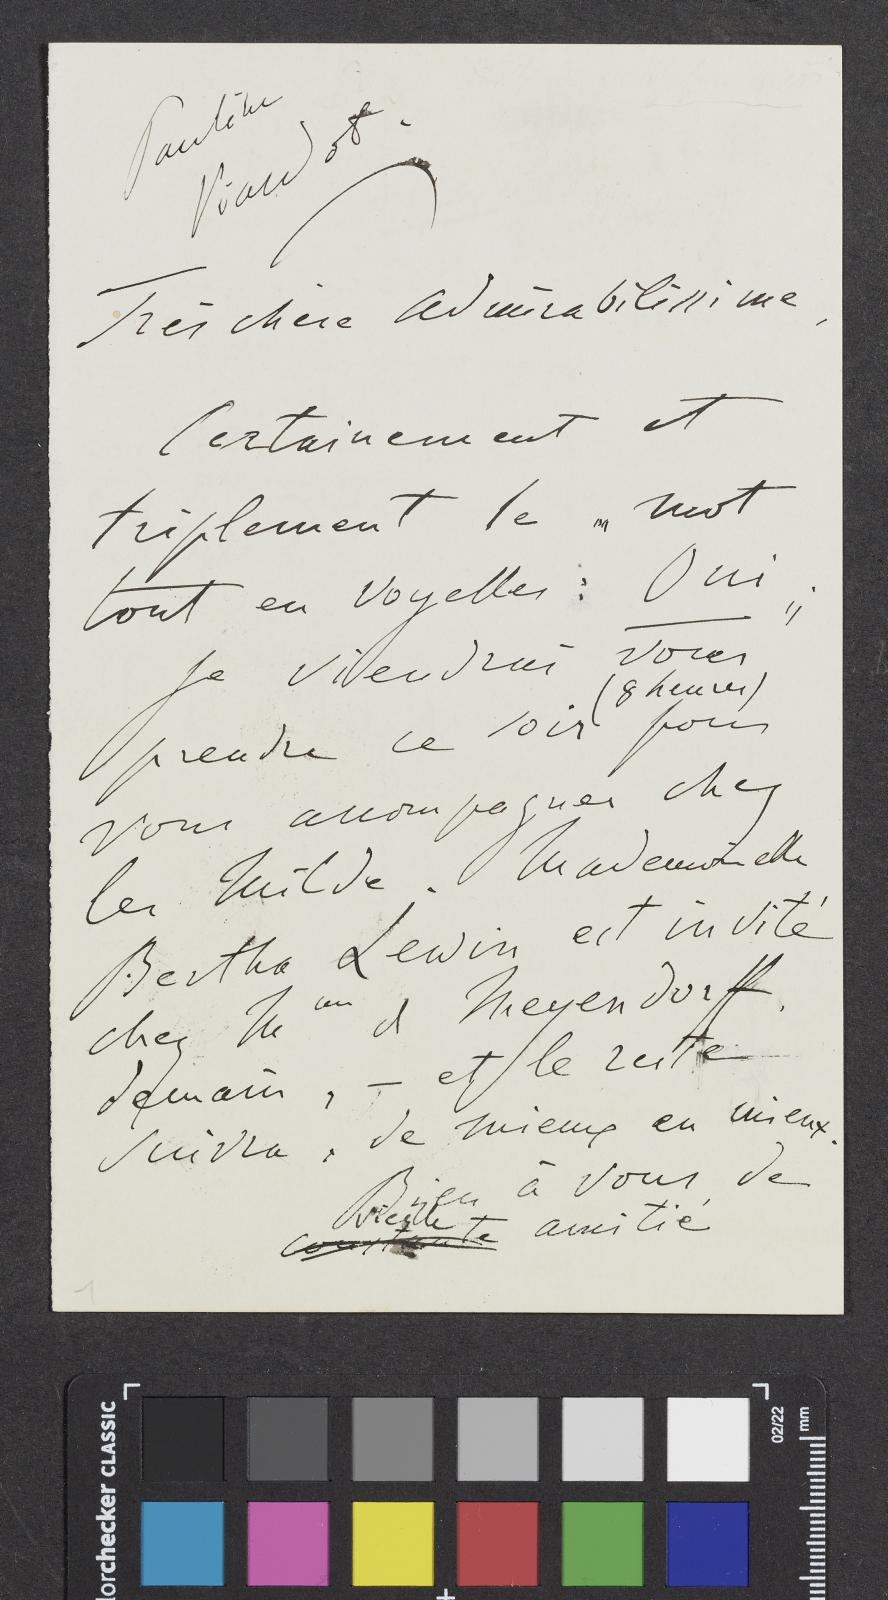 Pauline
Viardot.
Très chère Admirabilissime,
Certainement et
triplement le „mot
tout en voyelles: Oui„;
je viendrai vous
(8 heures)
prendre ce soir pour
vous accompagner chez
les Milde. Mademoiselle
Bertha Lewin est invité
chez Mme d Meyendorff.
demain, – et le reste
suivra, de mieux en mieux.
Bien à vous de
vieille
constante amitié
1
colorchecker CLASSIC
02/22
mm